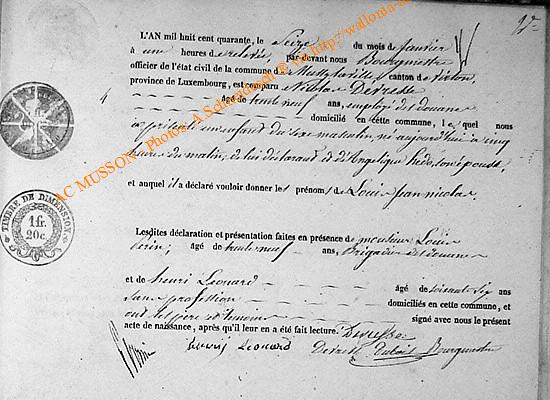 L'AN mil huit cent quarante, le Seize du mois de Janvier
à une heures de relevée, par devant nous Bourgmestre
officier de l'état civil de la commune de canton de Virton,
province de Luxembourg, est comparu Nicolas Devresse
4 âgé de trente neuf ans, employé des douanes
domicilié en cette commune, lequel nous
a présenté un enfant du sexe masculin, né aujourd'hui à cinq
heures du matin, de lui déclarant et d'Angelique son épouse
et auquel il a déclaré vouloir donner les prénoms de Louis Jean nicolas.
Lesdites déclaration et présentation faites en présence de Louis
âgé de trente neuf ans, Brigadier des douanes
et de henri Leonard âgé de soixante six ans
sans profession domiciliés en cette commune, et
ont les père et témoins signé avec nous le présent
acte de naissance, après qu'il leur en a été fait lecture. Devresse
henri Leonard Bourgmestre
TIMBRE DE DIMENSION
1 fr.
20 c.
AC MUSSON - Photos: A Schwendrosch © - http://wallonia-